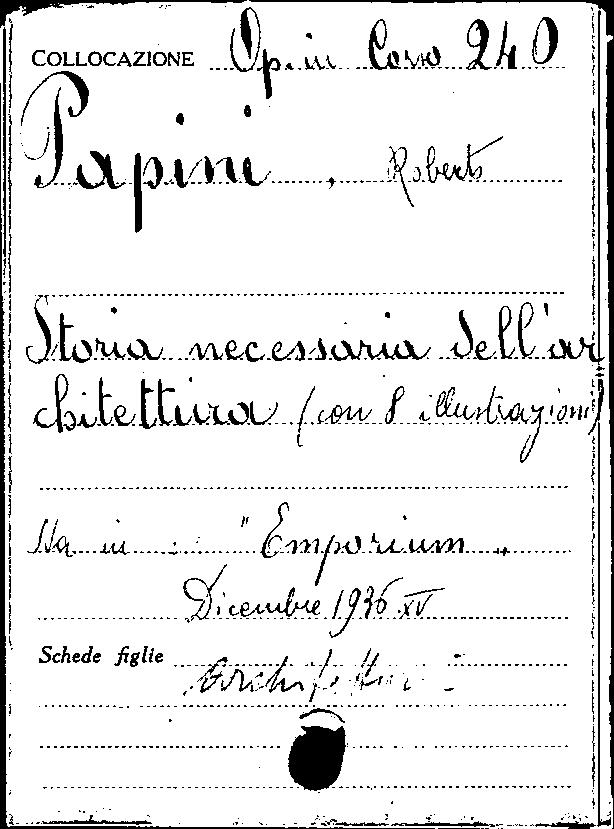 COLLOCAZIONE Op. in Corso 240
Papini, Roberto
Storia necessaria dell'ar
chitettura (con 8 illustrazioni)
Sta in : "Emporium"
Dicembre 1936 XV
Schede figlie